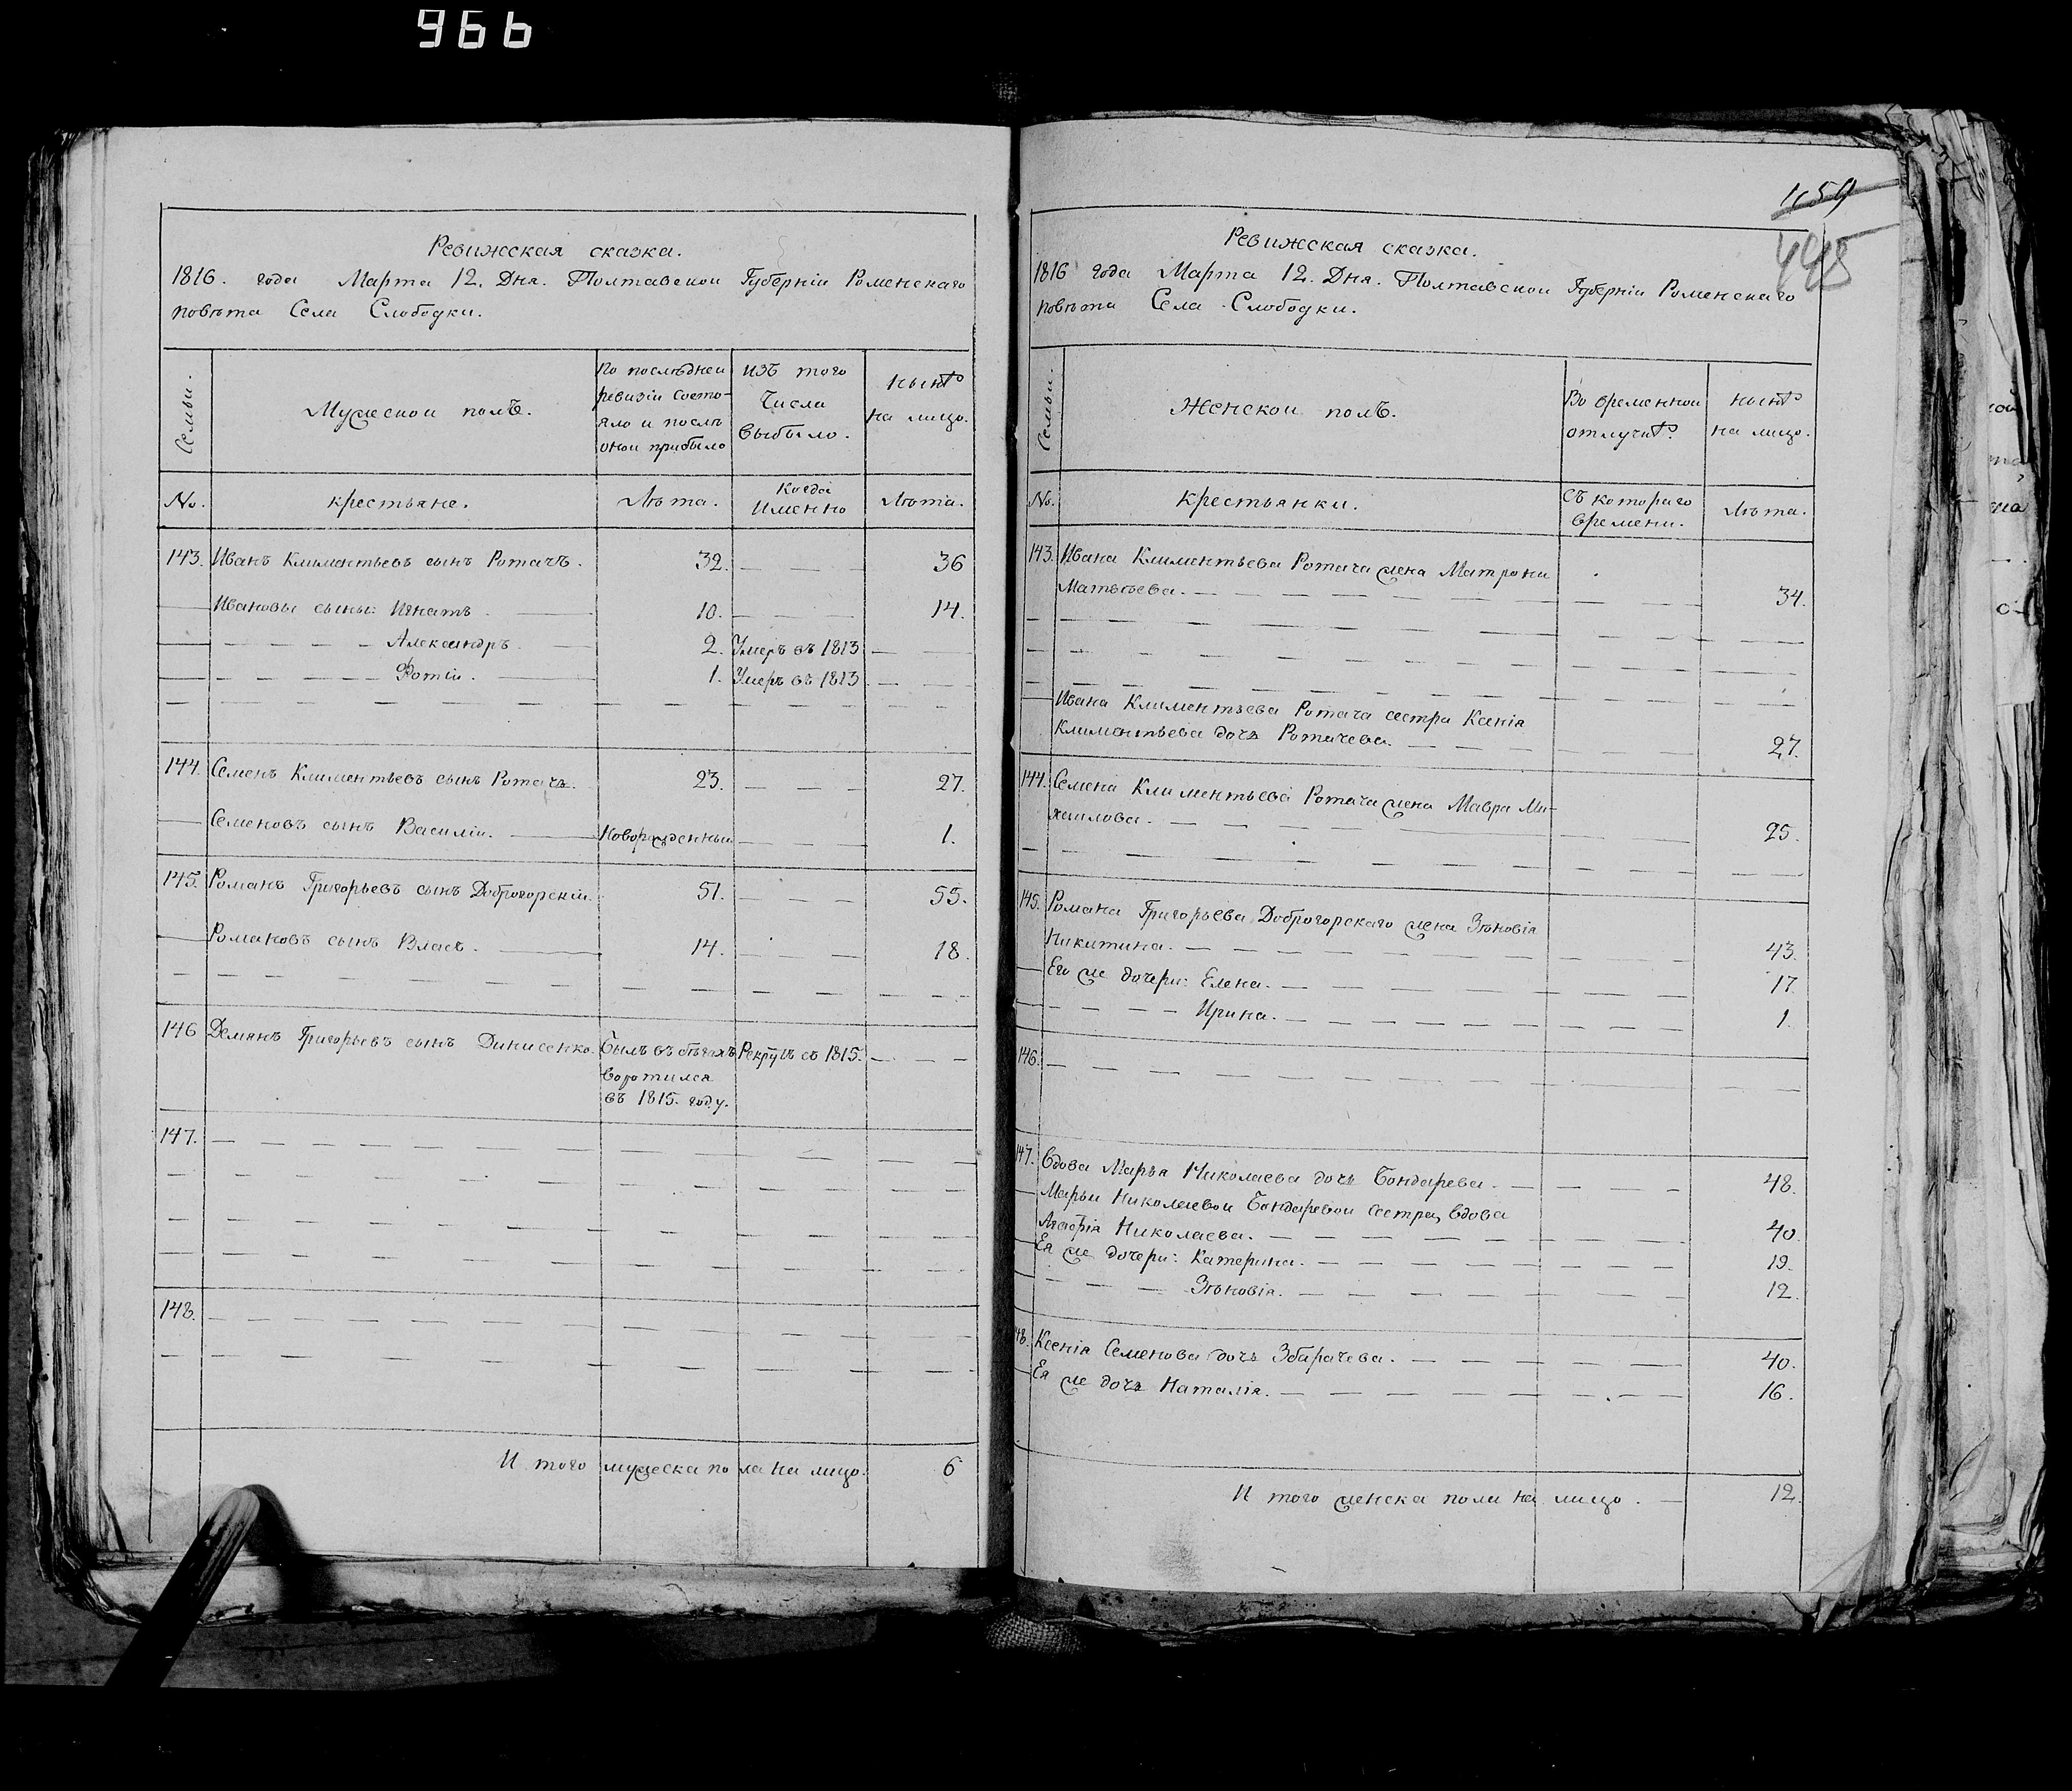 966
Ревижская сказка.
1816. года Марта 12. Дня. Полтавской Губерніи Роменскаго
повѣта Села Слободки.
Семьи.
Мужеской полъ.
По послѣдней
ревизіи состо-
яло и послѣ
оной прибыло
изъ того
Числа
выбыло.
нынѣ
на лицо.
No.
крестьяне.
Лѣта.
Когда
Именно
Лѣта.
143. Иванъ Климентьевъ сынъ Ротачъ. 32. 36
Ивановы сыны: Игнатъ 10. 14.
Александръ. 2. Умеръ въ 1813
Фотій. 1. Умеръ въ 1813
144. Семенъ Климентьевъ сынъ Ротачъ. 23. 27.
Семеновъ сынъ Василій. Новорожденный 1.
145. Романъ Григорьевъ сынъ Доброгорскій. 51. 55.
Романовъ сынъ Власъ. 14. 18.
146 Демянъ Григорьевъ сынъ Динисенко. Былъ въ бѣгахъ Рекрутъ съ 1815.
воротился
въ 1815. году.
147.
148.
И того мужеска пола на лицо. 6
1159
445
Ревижская сказка.
1816 года Марта 12. Дня. Полтавской Губерніи Роменскаго
повѣта Села Слободки.
Семьи.
Женской полъ.
Во временной
отлучкѣ.
нынѣ
на лицо.
No.
Крестьянки.
Съ котораго
времени.
Лѣта.
143. Ивана Климентьева Ротача жена Матрона
Матвѣева. 34.
Ивана Климентьева Ротача сестра Ксенія
Климентьева дочь Ротачева. 27.
144. Семена Климентьева Ротача жена Мавра Ми-
хаилова. 25.
145. Романа Григорьева Доброгорскаго жена Зѣновія
Никитина. 43.
Его же дочери: Елена. 17.
Ирина. 1.
146.
147. Вдова Марья Николаева дочь Бондарева. 48.
Марьи Николаевой Бондаревой сестра, вдова
Агафія Николаева. 40.
Ея же дочери: Катерина. 19.
Зѣновія. 12.
148. Ксенія Семенова дочь Збарачева. 40.
Ея же дочь Наталія. 16.
И того женска пола на лицо. 12.